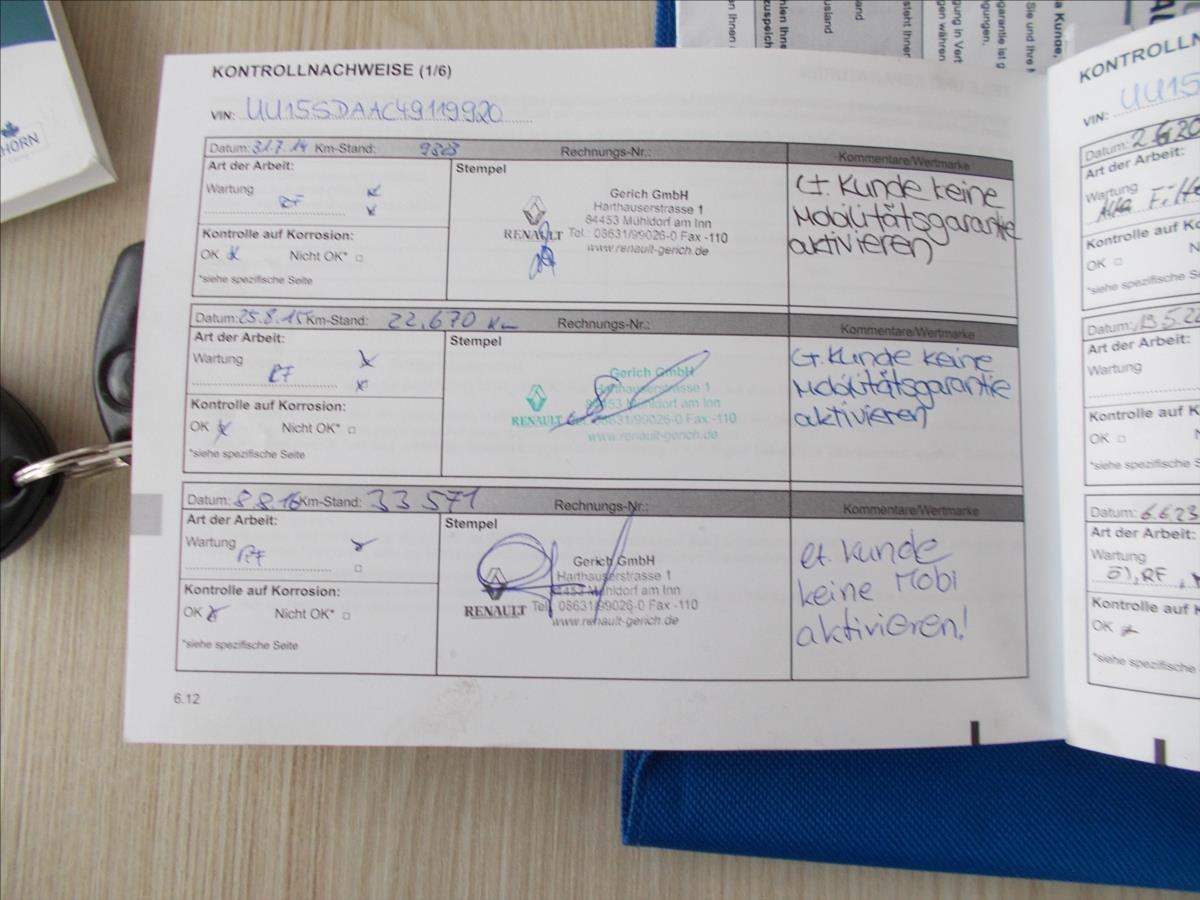 KONTROLLNACHWEISE (1/6)
VIN: UU15SDAAC49119920
Datum: 31.7.14 Km-Stand: 9323 Rechnungs-Nr.:
Kommentare/Wertmarke
Art der Arbeit:
Wartung
RF
Kontrolle auf Korrosion:
OK Nicht OK*
*siehe spezifische Seite
Stempel
RENAULT
Gerich GmbH
Harthauserstrasse 1
84453 Mühldorf am Inn
Tel.: 08631/99026-0 Fax -110
www.renault-gerich.de
Lt. Kunde keine
Mobilitätsgarantie
aktivieren
Datum: 25.8.15 Km-Stand: 22.670 Km Rechnungs-Nr.:
Kommentare/Wertmarke
Art der Arbeit:
Wartung
RF
Kontrolle auf Korrosion:
OK Nicht OK*
*siehe spezifische Seite
Stempel
RENAULT
Gerich GmbH
Harthauserstrasse 1
84453 Mühldorf am Inn
Tel.: 08631/99026-0 Fax -110
www.renault-gerich.de
Lt. Kunde keine
Mobilitätsgarantie
aktivieren
Datum: 8.8.16 Km-Stand: 33 571 Rechnungs-Nr.:
Kommentare/Wertmarke
Art der Arbeit:
Wartung
RF
Kontrolle auf Korrosion:
OK Nicht OK*
*siehe spezifische Seite
Stempel
RENAULT
Gerich GmbH
Harthauserstrasse 1
84453 Mühldorf am Inn
Tel.: 08631/99026-0 Fax -110
www.renault-gerich.de
Lt. Kunde
keine Mobi
aktivieren!
6.12
KONTROLLN
VIN: UU15
Datum:
Art der Arbeit:
Wartung
Kontrolle auf Ko
OK
*siehe spezifische
Datum: 19.5.2
Art der Arbeit:
Wartung
Kontrolle auf K
OK
*siehe spezifische
Datum: 6.6.23
Art der Arbeit:
Wartung
Öl, RF,
Kontrolle auf K
OK
*siehe spezifische
HORN